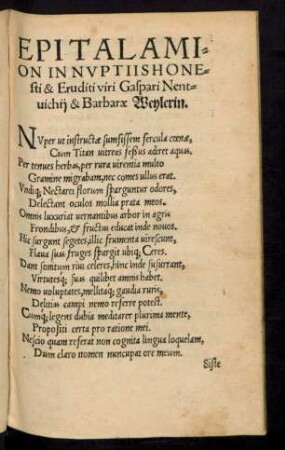 EPITALAMI-
ON IN NVPTIIS HONE-
sti & Eruditi viri Gaspari Nent-
uichij & Barbaræ Weylerin.
NVper ut instructæ sumsissem fercula cœnæ,
Cum Titan uitreas fessus adiret aquas.
Per tenues herbas, per rura virentia multo
Gramine migrabam, nec comes ullus erat.
Vndiq; Nectarei florum sparguntur odores,
Delectant oculos mollia prata meos.
Omnis luxuriat vernantibus arbor in agris
Frondibus, & fructus educat inde nouos.
Hic surgunt segetes, illic frumenta uirescunt,
Flaua suas fruges spargit ubiq; Ceres.
Dant sonitum rius celeres, hinc inde susurrant,
Virtutesq; suas quælibet amnis habet.
Nemo uoluptates, mellitáq; gaudia ruris,
Delitias campi nemo referre potest.
Cumq; legens dubia meditarer plurima mente,
Propositi certa pro ratione mei.
Nescio quam referat non cognita lingua loquelam,
Dum claro nomen nuncupat ore meum.
Siste